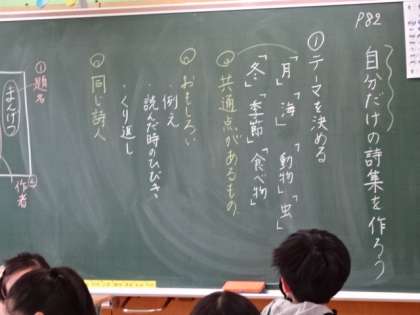 P82
自分だけの詩集を作ろう
①テーマを決める
「月」「海」「動物」「虫」
「冬」「季節」「食べ物」
共通点があるもの
おもしろい
・例え
・読んだ時のひびき
・くり返し
同じ詩人
①題名
まんげつ
②作者